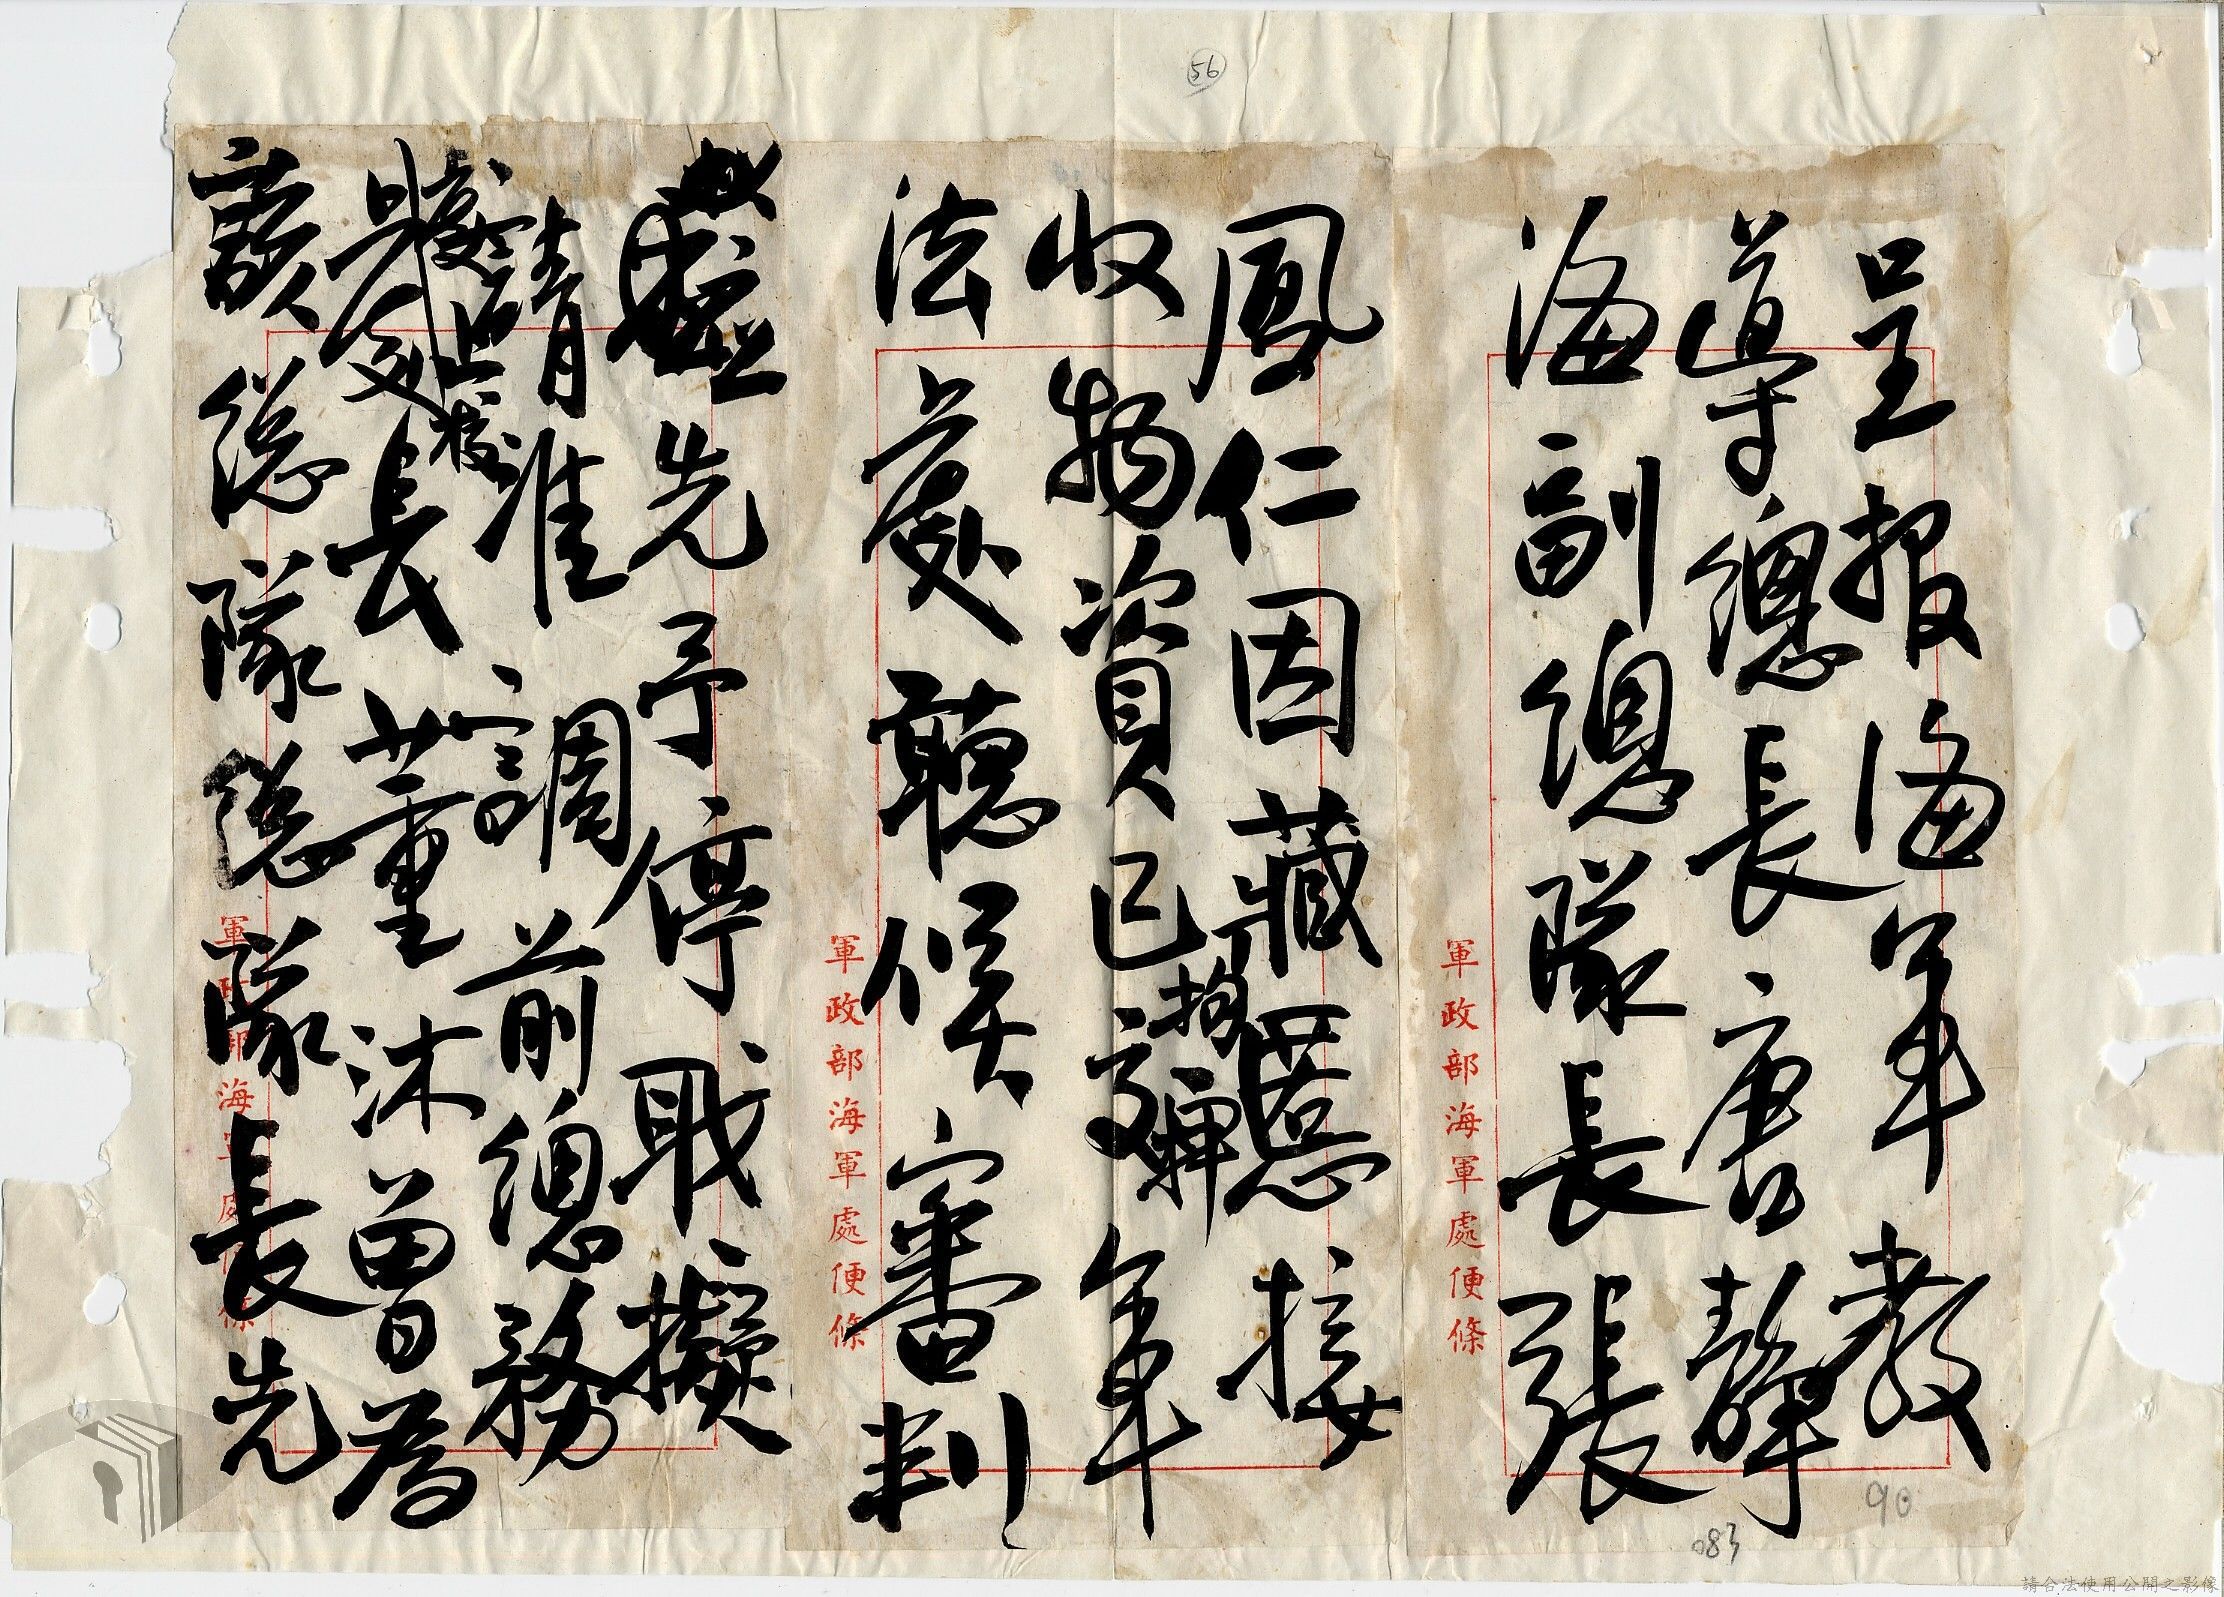 56
呈報海軍教
導總長唐靜
海副總隊長張
軍政部海軍處便條
鳳仁因藏慝接
收物資已拘
交軍
法處聽候審判
軍政部海軍處便條
先予停職擬
請准調前總務
處長董沐曾為
上校
該總隊總隊長先
軍政部海軍處便條
90
083
請合法使用公開之影像